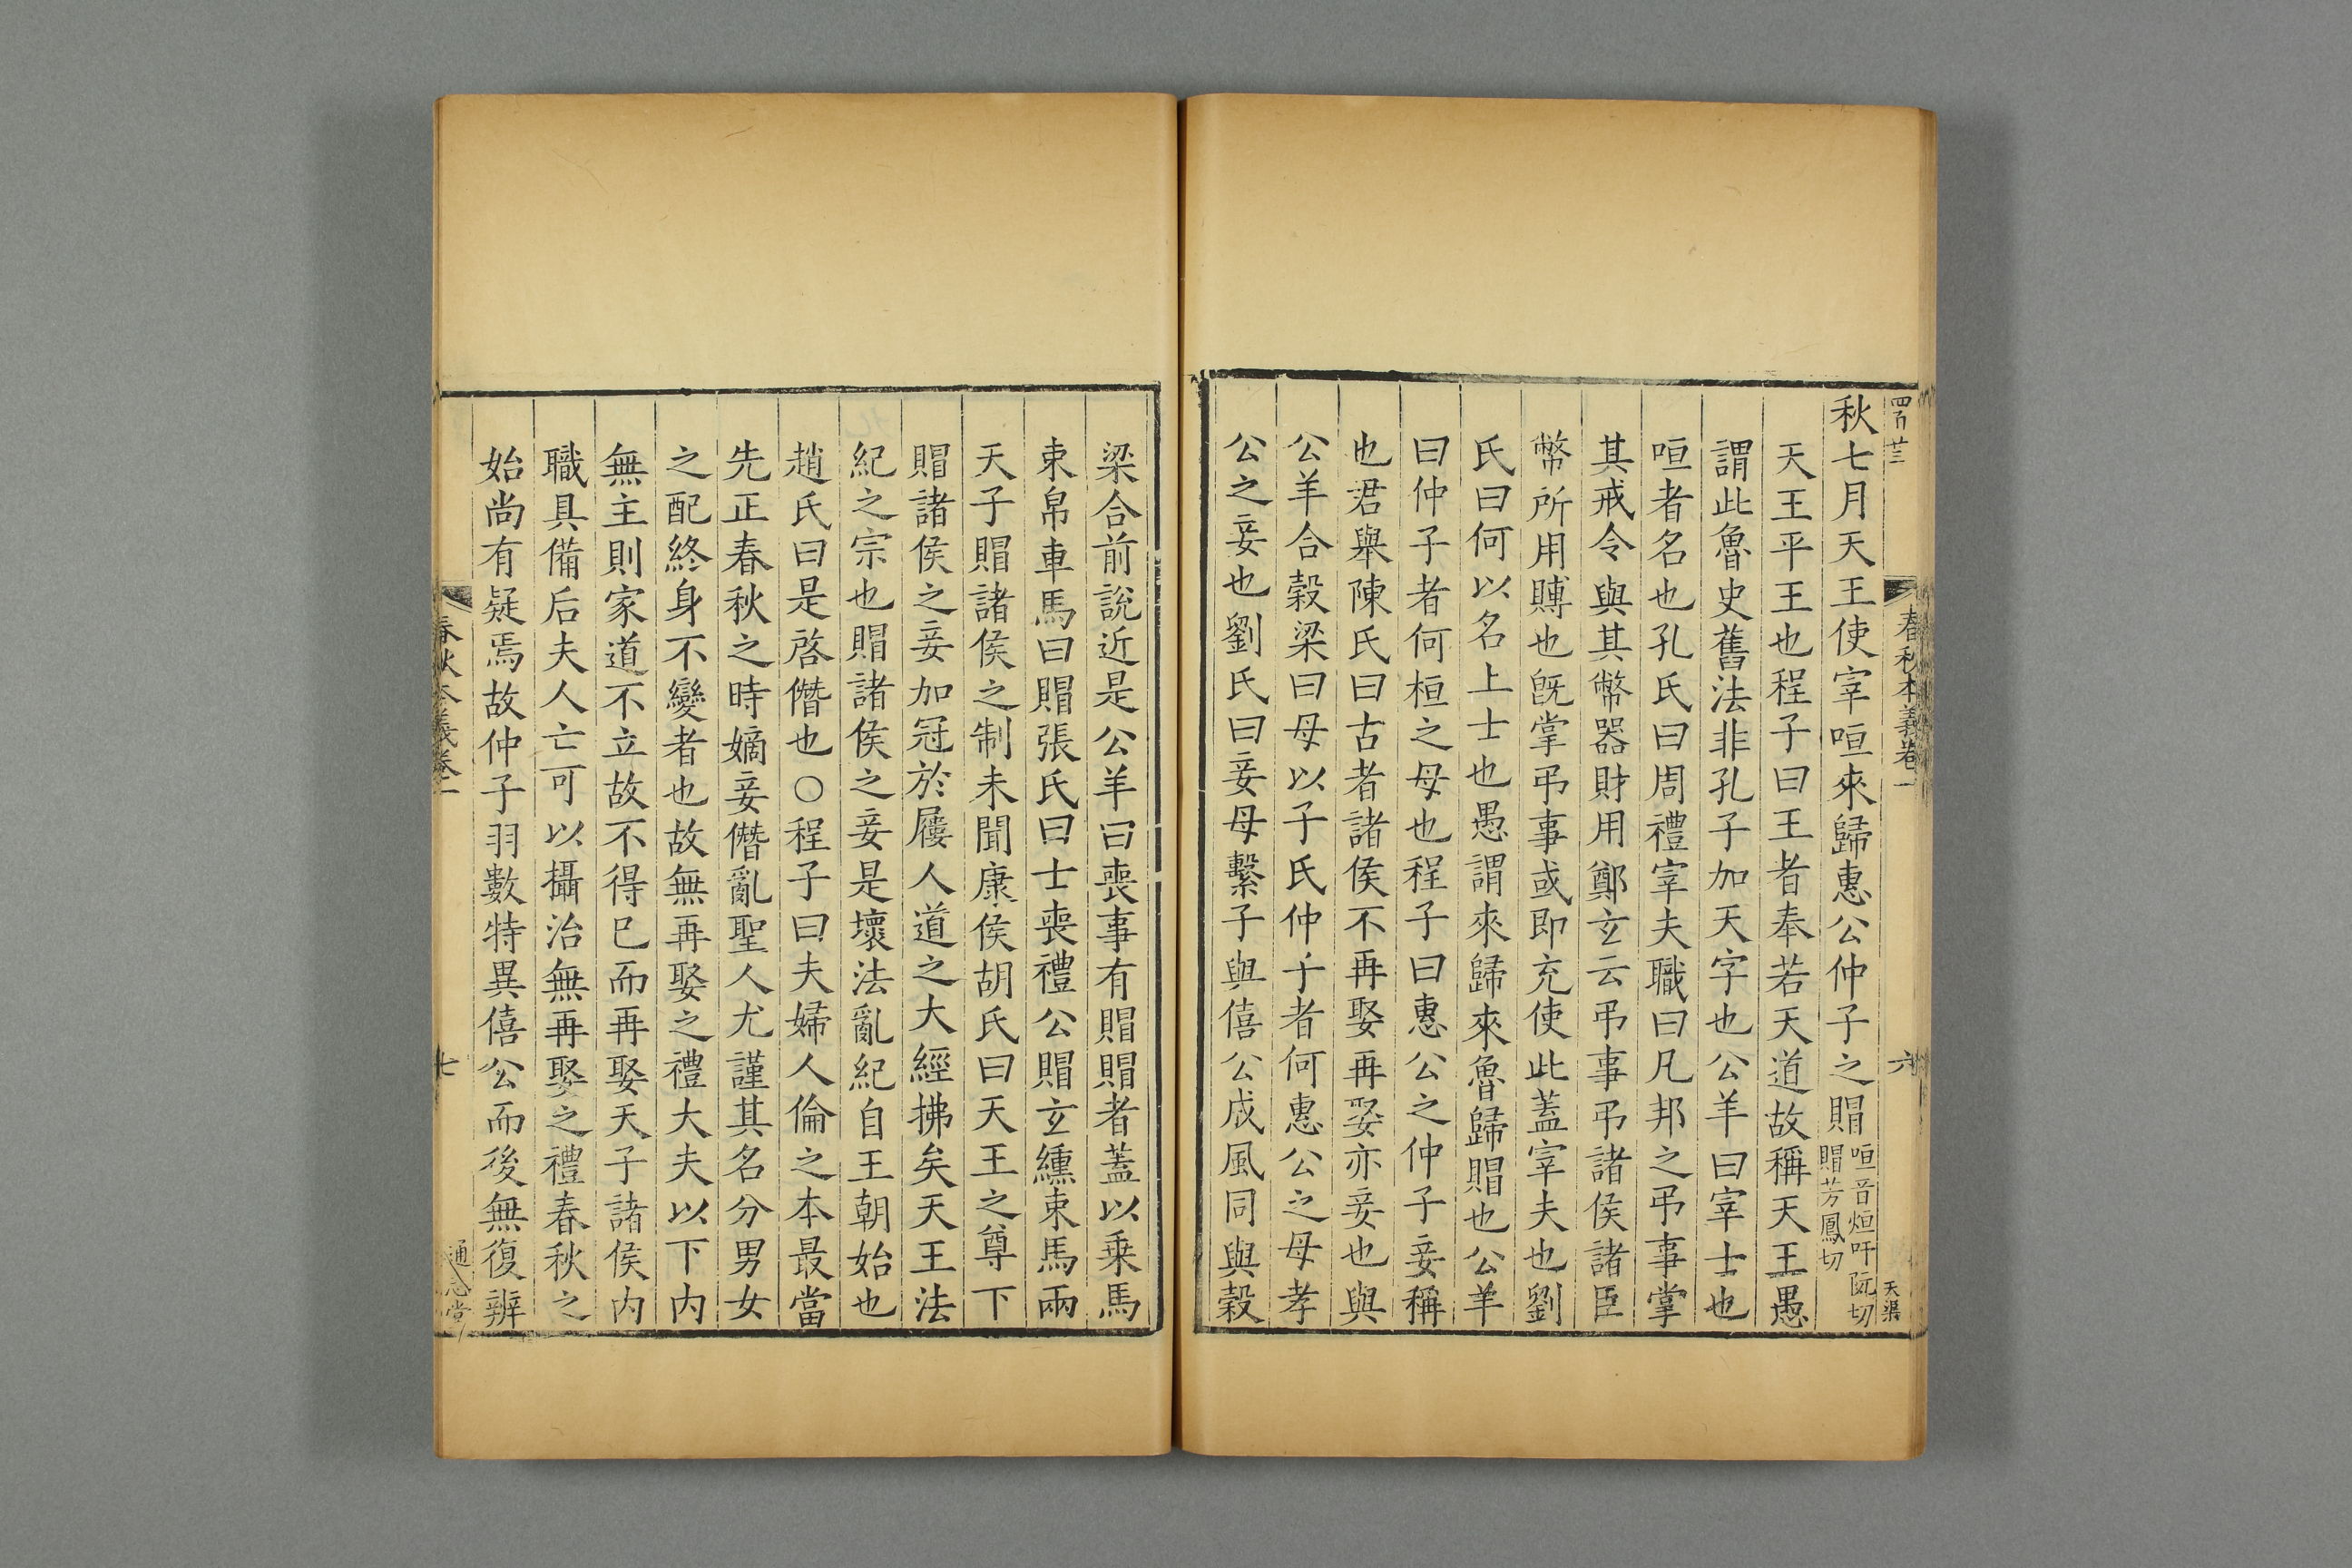 春秋本義卷一
六
秋七月天王使宰咺來歸惠公仲子之賵咺音烜吁阮切賵芳鳳切
天王平王也程子曰王者奉若天道故稱天王愚
謂此魯史舊法非孔子加天字也公羊曰宰士也
咺者名也孔氏曰周禮宰夫職曰凡邦之弔事掌
其戒令與其幣器財用鄭玄云弔事弔諸侯諸臣
幣所用賻也旣掌弔事或即充使此蓋宰夫也劉
氏曰何以名上士也愚謂來歸來魯歸賵也公羊
曰仲子者何桓之母也程子曰惠公之仲子妾稱
也君舉陳氏曰古者諸侯不再娶再娶亦妾也與
公羊合穀梁曰母以子氏仲子者何惠公之母孝
公之妾也劉氏曰妾母繫子與僖公成風同與穀
梁合前說近是公羊曰喪事有賵賵者蓋以乗馬
束帛車馬曰賵張氏曰士喪禮公賵玄纁束馬兩
天子賵諸侯之制未聞康侯胡氏曰天王之尊下
賵諸侯之妾加冠於屨人道之大經拂矣天王法
紀之宗也賵諸侯之妾是壞法亂紀自王朝始也
趙氏曰是啓僭也○程子曰夫婦人倫之本最當
先正春秋之時嫡妾僭亂聖人尤謹其名分男女
之配終身不變者也故無再娶之禮大夫以下內
無主則家道不立故不得已而再娶天子諸侯內
職具備后夫人亡可以攝治無再娶之禮春秋之
始尚有疑焉故仲子羽數特異僖公而後無復辨
春秋本義卷一
七
通志堂